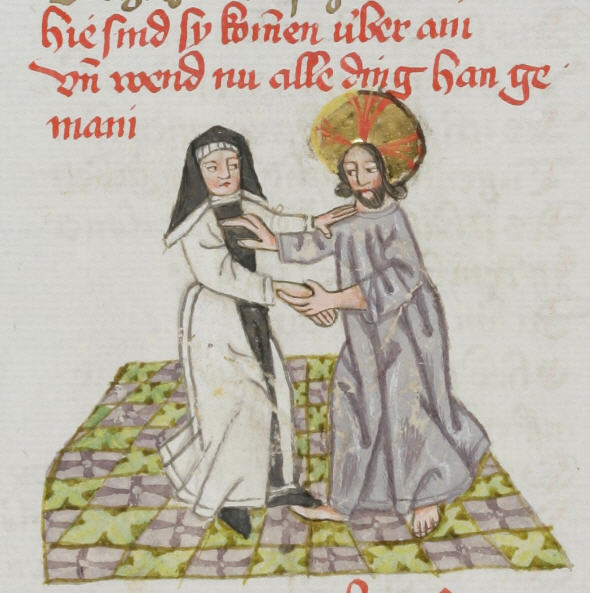 hie sind sy kom̄en úber ain
vn̄ wend nu alle ding han ge
main